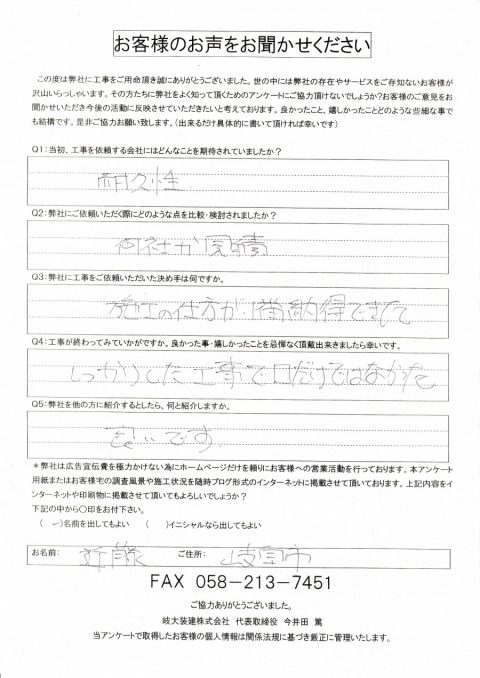 お客様のお声をお聞かせください
この度は弊社に工事をご用命頂き誠にありがとうございました。世の中には弊社の存在やサービスをご存知ないお客様が
沢山いらっしゃいます。その方たちに弊社をよく知って頂くためのアンケートにご協力頂けないでしょうか?お客様のご意見をお
聞かせいただき今後の活動に反映させていただきたいと考えております。良かったこと、嬉しかったことどのような些細な事で
も結構です。是非ご協力お願い致します。(出来るだけ具体的に書いて頂ければ幸いです)
Q1:当初、工事を依頼する会社にはどんなことを期待されていましたか?
耐久性
Q2:弊社にご依頼いただく際にどのような点を比較・検討されましたか?
何社か見積
Q3:弊社に工事をご依頼いただいた決め手は何ですか。
施工の仕方が一番納得できて
Q4:工事が終わってみていかがですか。良かった事・嬉しかったことを忌憚なく頂戴出来きましたら幸いです。
しっかりした工事で口だけではなかった
Q5:弊社を他の方に紹介するとしたら、何と紹介しますか。
良いです。
*弊社は広告宣伝費を極力かけない為にホームページだけを頼りにお客様への営業活動を行っております。本アンケート
用紙またはお客様宅の調査風景や施工状況を随時ブログ形式のインターネットに掲載させて頂いております。上記内容をイ
ンターネットや印刷物に掲載させて頂いてもよろしいでしょうか?
下記の中から〇印をお付下さい。
( )名前を出してもよい ( )イニシャルなら出してもよい
お名前: 近藤 ご住所: 岐阜市
FAX 058-213-7451
ご協力ありがとうございました。
岐大装建株式会社 代表取締役 今井田 篤
当アンケートで取得したお客様の個人情報は関係法規に基づき厳正に管理いたします。